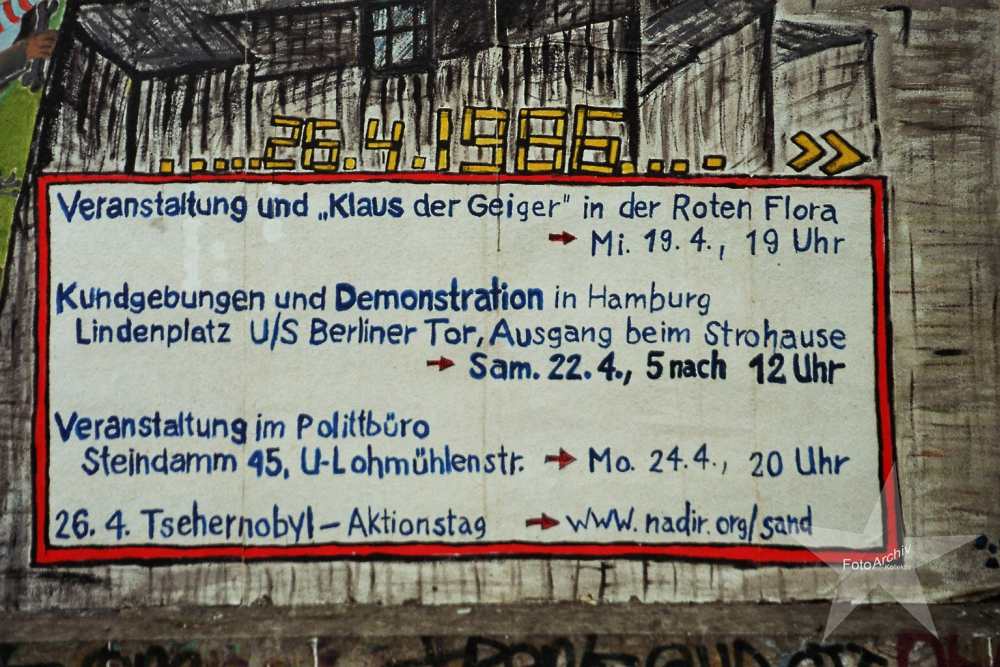 ......26.4.1986.... >>
Veranstaltung und „Klaus der Geiger" in der Roten Flora
→ Mi. 19. 4., 19 Uhr
Kundgebungen und Demonstration in Hamburg
Lindenplatz U/S Berliner Tor, Ausgang beim Strohause
→ Sam. 22. 4., 5 nach 12 Uhr
Veranstaltung im Polittbüro
Steindamm 45, U-Lohmühlenstr. → Mo. 24.4., 20 Uhr
26. 4. Tschernobyl - Aktionstag → www.nadir.org/sand
FotoArchiv